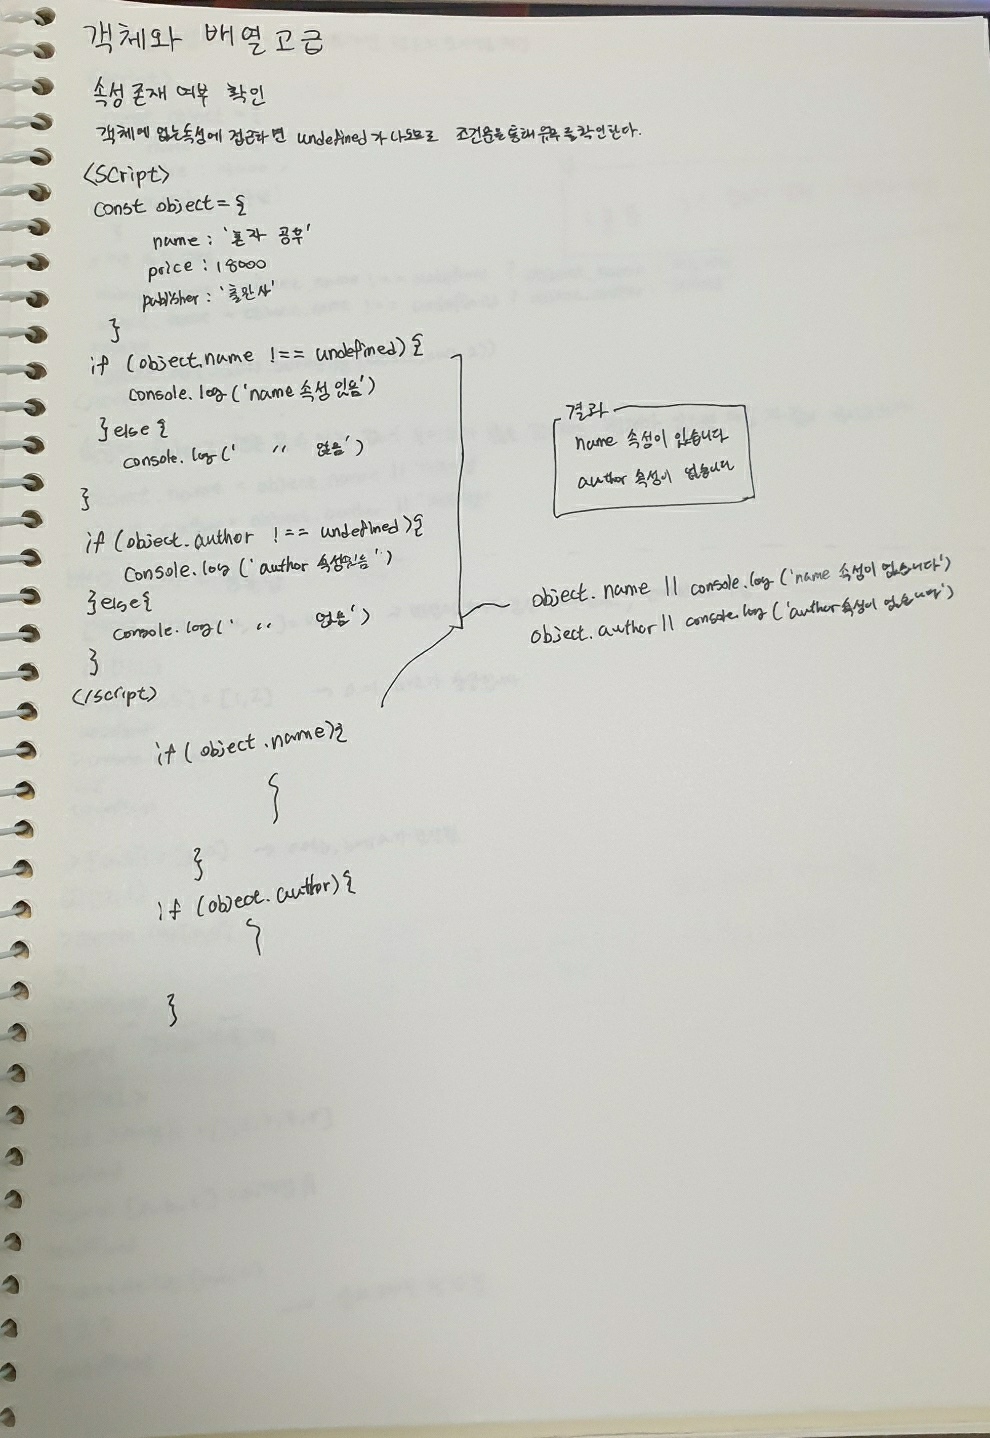 객체와 배열고급
속성 존재 여부 확인
객체에 없는속성에 접근하면 undefined가 나오므로 조건문을 통해 유무를 확인한다.
<Script>
const object = {
name : '혼자 공부'
price : 18000
publisher : '출판사'
}
if (object.name !== undefined){
console.log('name 속성 있음')
}else{
console.log(' 〃 없음')
}
if (object.author !== undefined){
console.log('author 속성있음')
}else{
console.log(' 〃 없음')
}
</script>
결과
name 속성이 있습니다
author 속성이 없습니다
object.name || console.log('name 속성이 없습니다')
object.author || console.log('author속성이 없습니다')
if (object.name){
}
if (object.author){
}